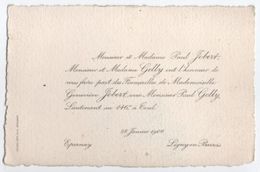 Monsieur et Madame Paul Jobert;
Monsieur et Madame Golly ont l'honneur de
vous faire part des Fiançailles de Mademoiselle
Geneviève Jobert, avec Monsieur Paul Golly,
Lieutenant au 146e à Toul.
28 Janvier 1906
Epernay
Ligny-en-Barrois